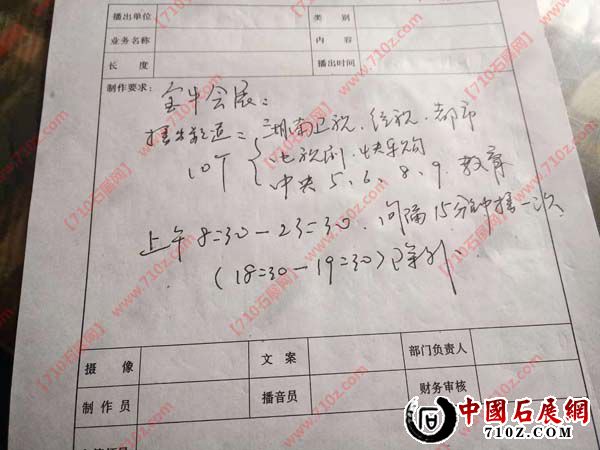 播出单位 类别
业务名称 内容
长度 播出时间
制作要求：
金牛会展：
播出频道：湖南卫视、经视、都市
10个 电视剧、快乐购
中央5、6、8、9、教育
上午8:30－23:30、间隔15分钟播一次、
(18:30－19:30)除外
摄像 文案 部门负责人
制作员 播音员 财务审核
【710石展网】www.710z.com
中國石展網
710Z.COM